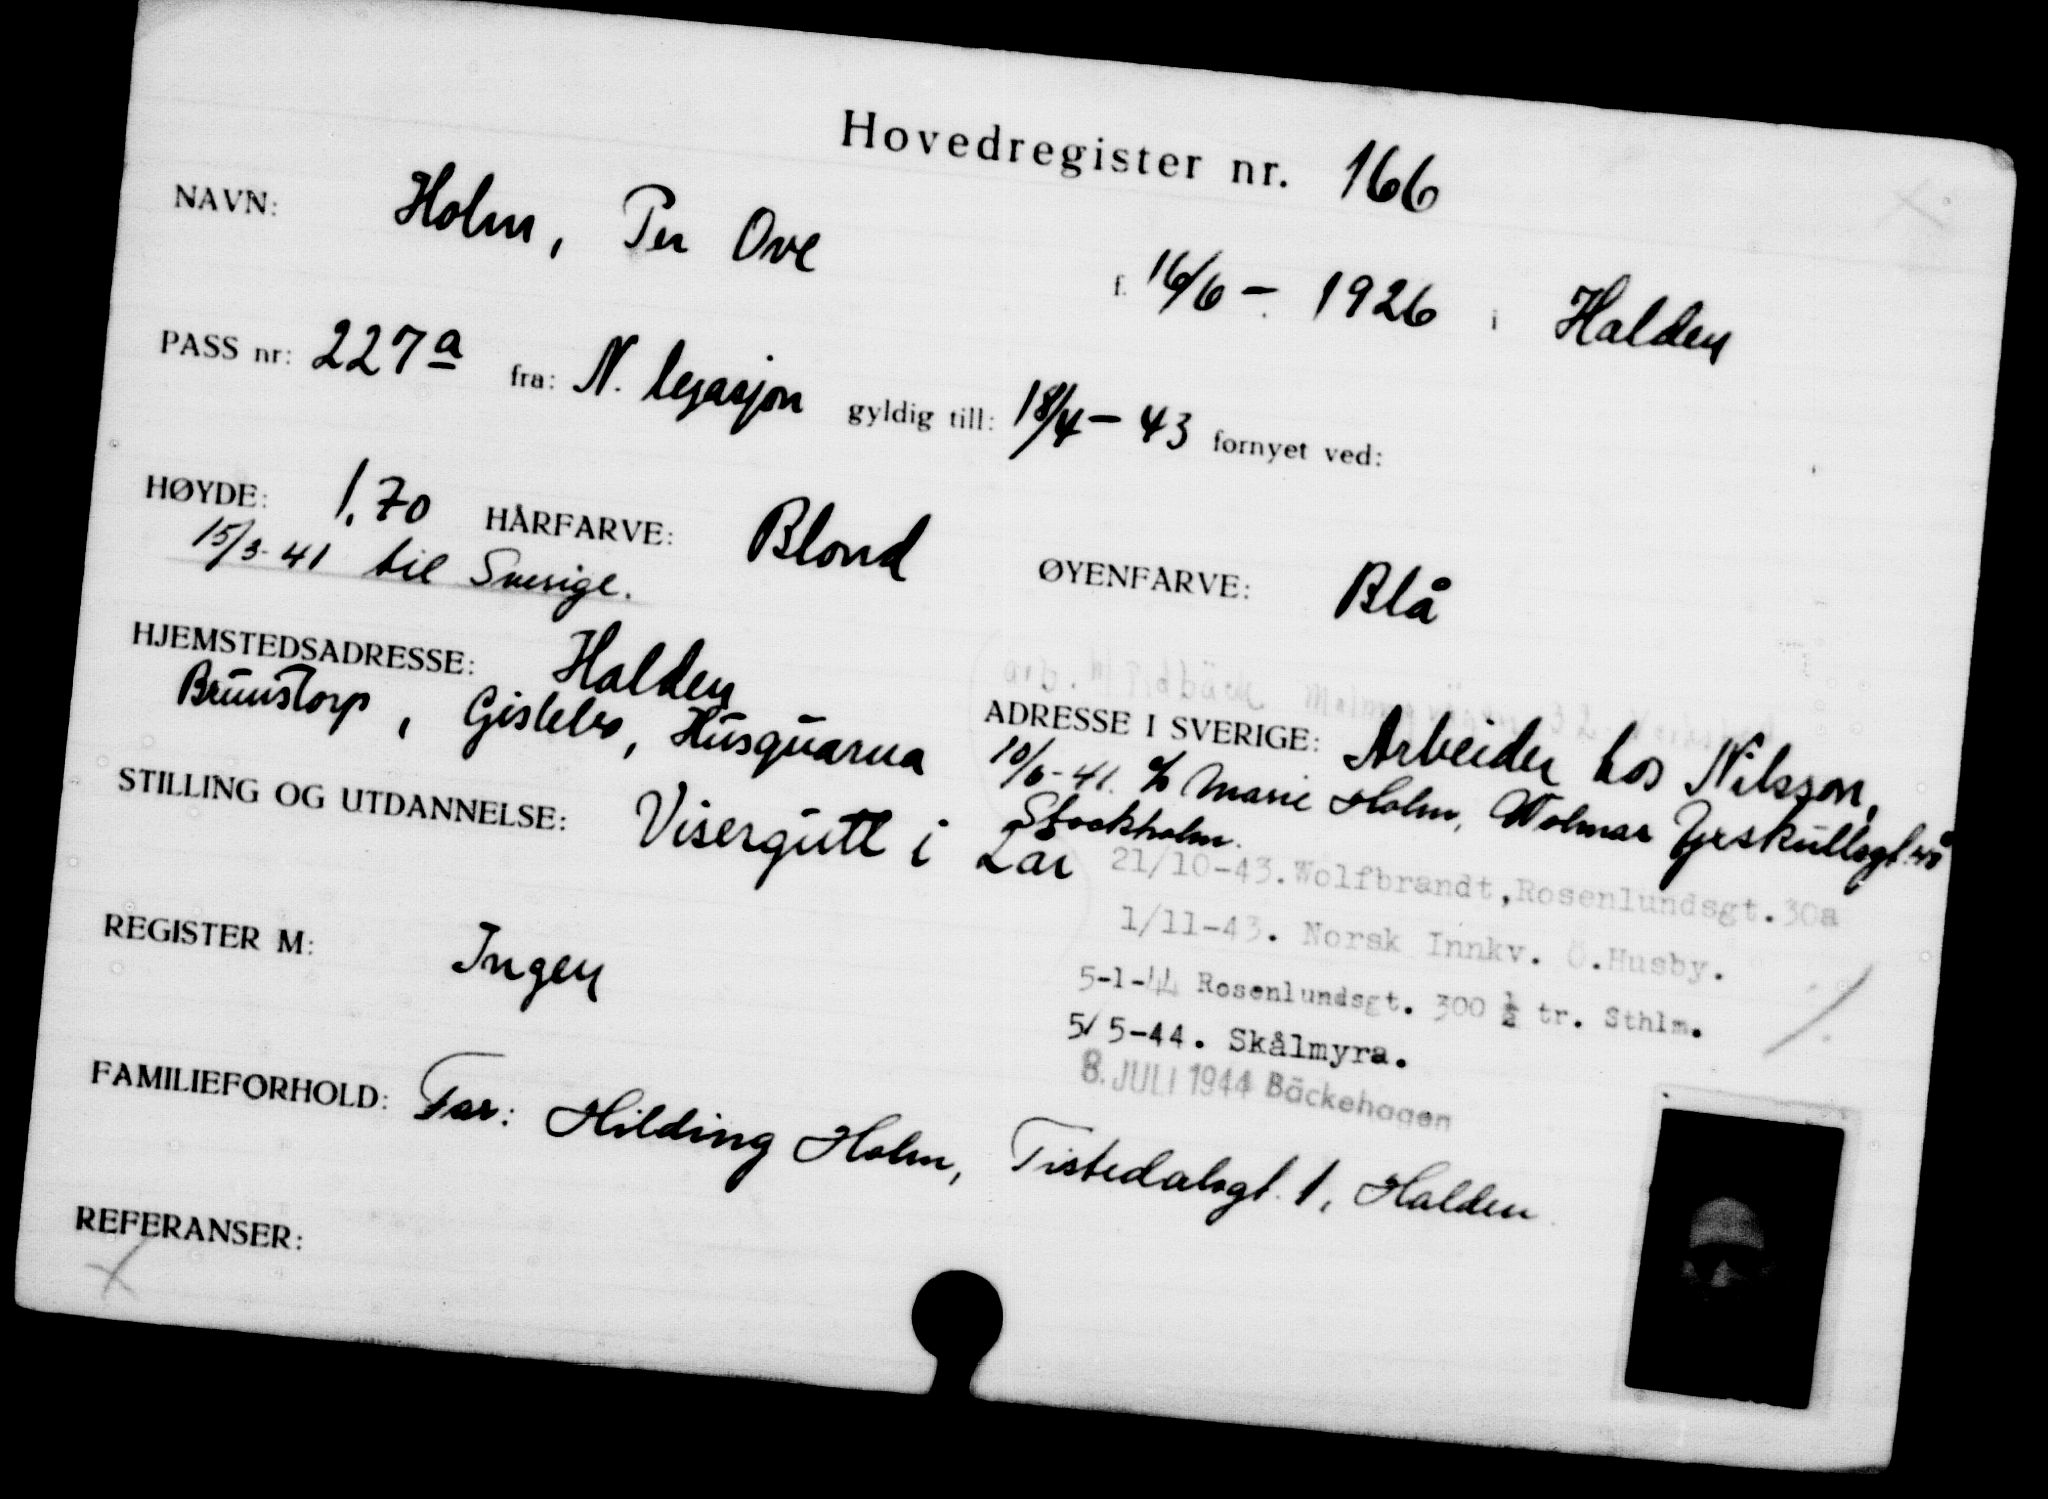 Hovedregister nr. 166
NAVN: Holm, Per Ove f. 16/6 - 1926 i Halden
PASS nr: 227a fra: N. legasjon gyldig till: 18/4 - 43 fornyet ved:
HØYDE: 1.70 HÅRFARVE: Blond ØYENFARVE: Blå
15/3-41 til Sverige.
HJEMSTEDSADRESSE: Halden
ADRESSE I SVERIGE: Arbeider hos Nilsson,
Brunstorp, Gislebo, Husquarna
10/6-41. c/o Marie Holm, Wolmar Yxskullsgt.
Stockholm.
STILLING OG UTDANNELSE: Visergutt i Lar
21/10-43. Wolfbrandt, Rosenlundsgt. 30a
1/11-43. Norsk Innkv. Ö. Husby.
REGISTER M: Ingen
5-1-44 Rosenlundsgt. 300 ½ tr. Sthlm.
5/5-44. Skålmyra.
8. JULI 1944 Bäckehagen
FAMILIEFORHOLD: Far: Hilding Holm, Tistedalsgt. 1, Halden
REFERANSER: